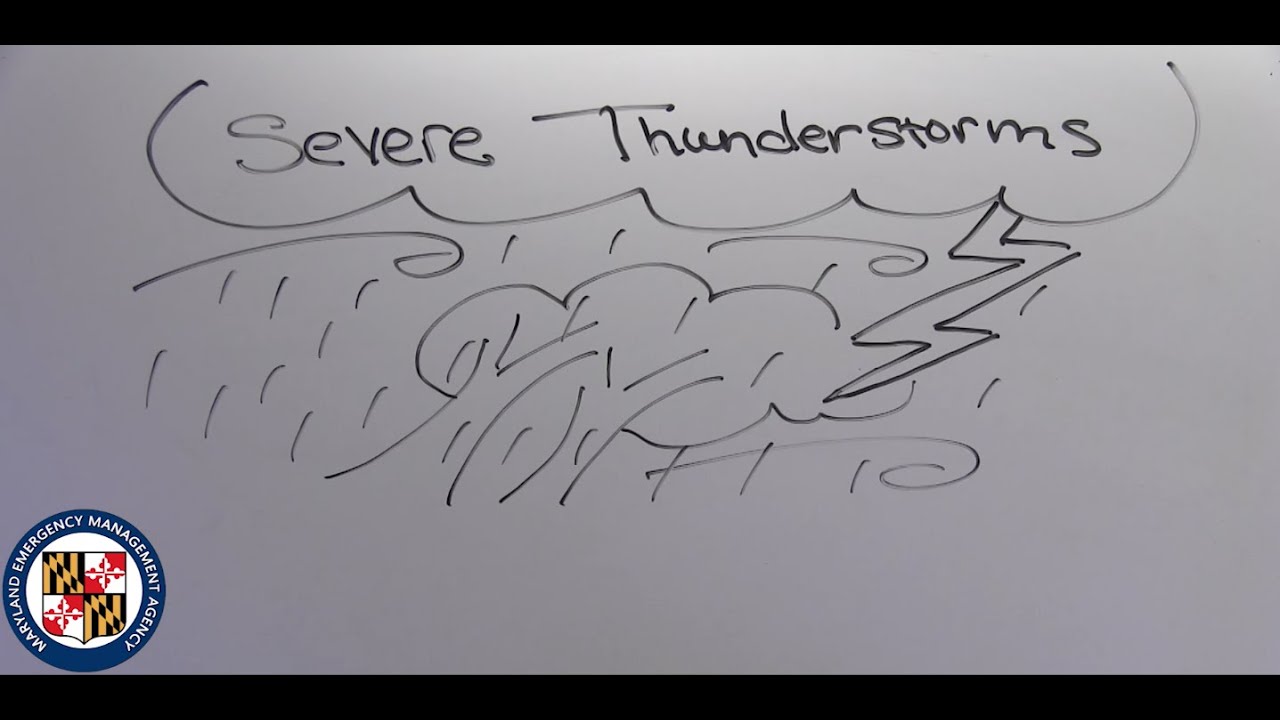 Severe Thunderstorms
MARYLAND EMERGENCY MANAGEMENT AGENCY